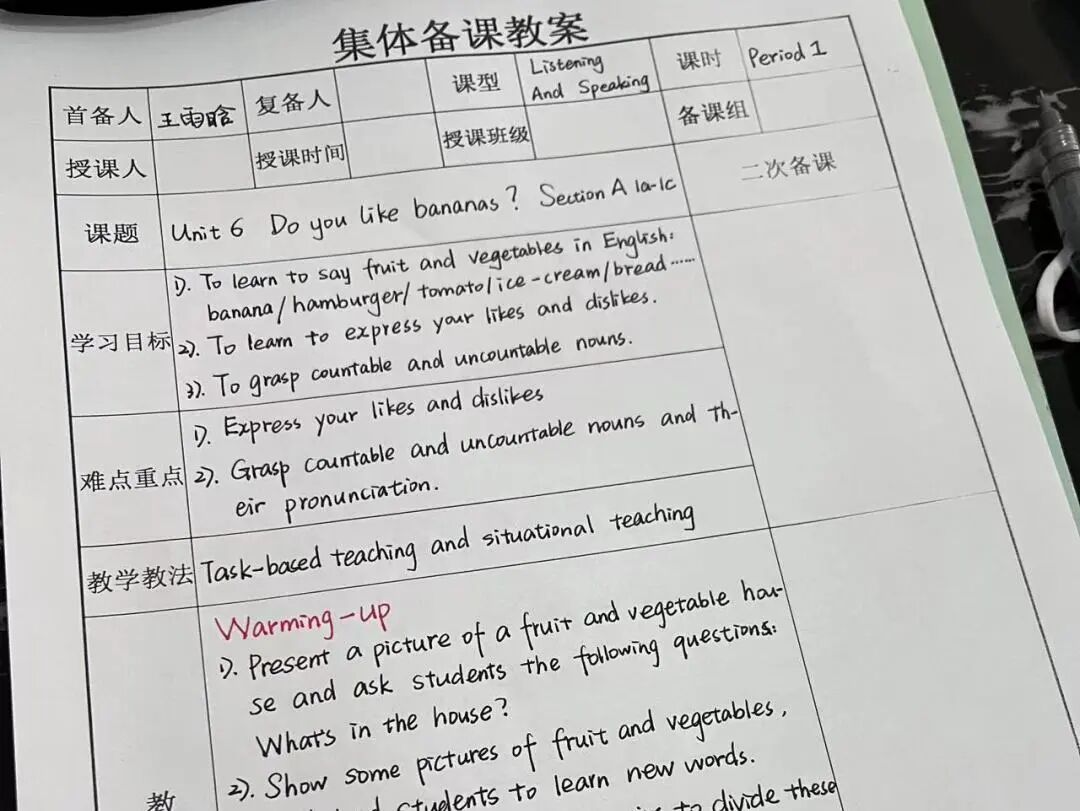 集体备课教案
首备人 王雨晗 复备人 课型 Listening And Speaking 课时 Period 1
授课人 授课时间 授课班级 备课组
课题 Unit 6 Do you like bananas? Section A 1a-1c 二次备课
学习目标
1). To learn to say fruit and vegetables in English:
banana/hamburger/tomato/ice-cream/bread……
2). To learn to express your likes and dislikes.
3). To grasp countable and uncountable nouns.
难点重点
1). Express your likes and dislikes
2). Grasp countable and uncountable nouns and th-
eir pronunciation.
教学教法 Task-based teaching and situational teaching
Warming-up
1). Present a picture of a fruit and vegetable hou-
se and ask students the following questions:
What's in the house?
2). Show some pictures of fruit and vegetables,
students to learn new words.
教
to divide these